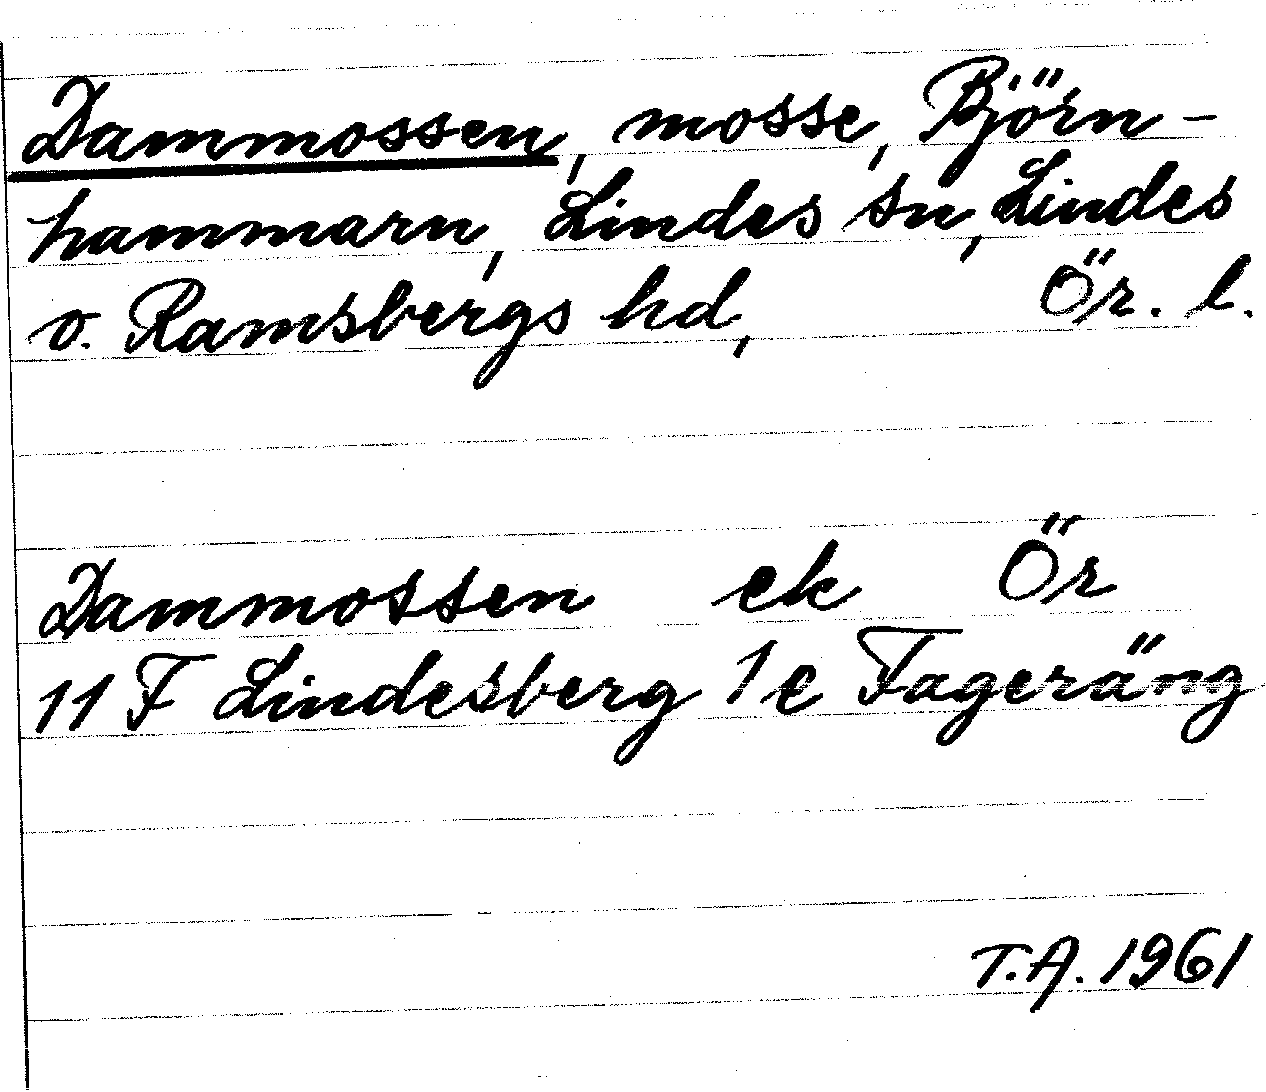 Dammossen, mosse, Björn-
hammarn, Lindes sn, Lindes
o. Ramsbergs hd, Ör. l.
Dammossen ek Ör
11 F Lindesberg 1 e Fageräng
T.A. 1961